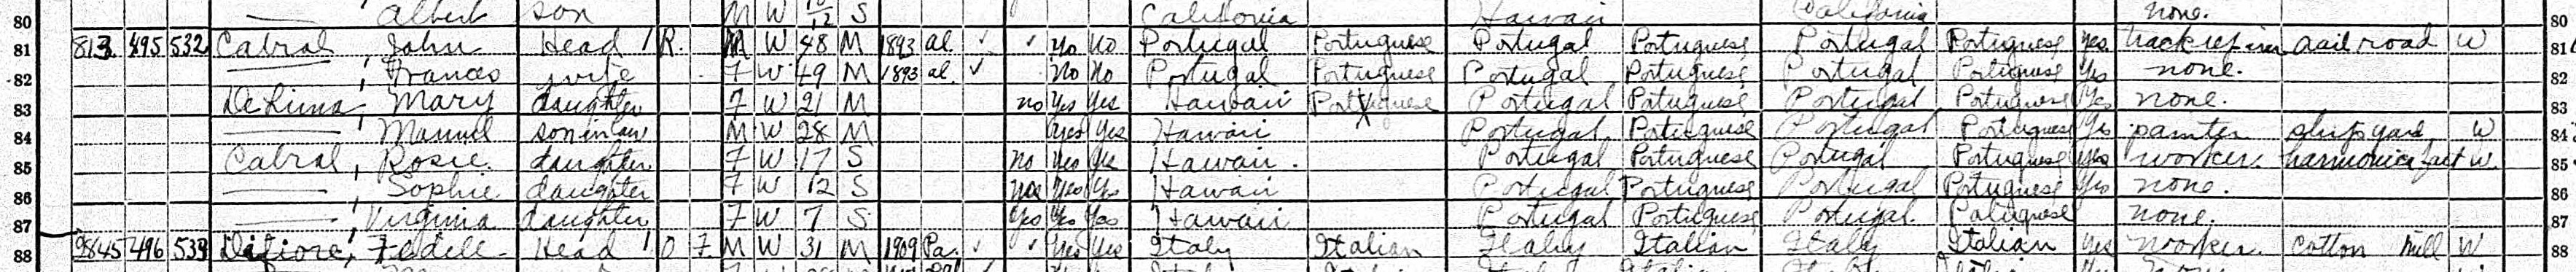 80 Albert son M W 10/12 S California Hawaii California none. 80
81 813 495 532 Cabral, John Head 1 R. M W 48 M 1893 al. ✓ ✓ No No Portugal Portuguese Portugal Portuguese Portugal Portuguese Yes railroad W 81
82 Frances wife F W 49 M 1893 al. ✓ No No Portugal Portuguese Portugal Portuguese Portugal Portuguese Yes none. 82
83 DeLima, Mary daughter F W 21 M no Yes Yes Hawaii Portuguese Portugal Portuguese Portugal Portuguese Yes none. 83
84 Manuel son in law M W 28 M Yes Yes Hawaii Portugal Portuguese Portugal Portuguese Yes painter shipyard W 84
85 Cabral, Rosie daughter F W 17 S no Yes Yes Hawaii. Portugal Portuguese Portugal Portuguese Yes worker. harmonica fact W. 85
86 Sophie daughter F W 12 S Yes Yes Yes Hawaii Portugal Portuguese Portugal Portuguese Yes none. 86
87 Virginia daughter F W 7 S Yes Yes Yes Hawaii Portugal Portuguese Portugal. Portuguese none. 87
88 496 533 Difiore, Fedele Head 1 O F M W 31 M 1909 Pa. ✓ ✓ Yes Yes Italy Italian Italy Italian Italy Italian Yes worker. cotton mill W 88